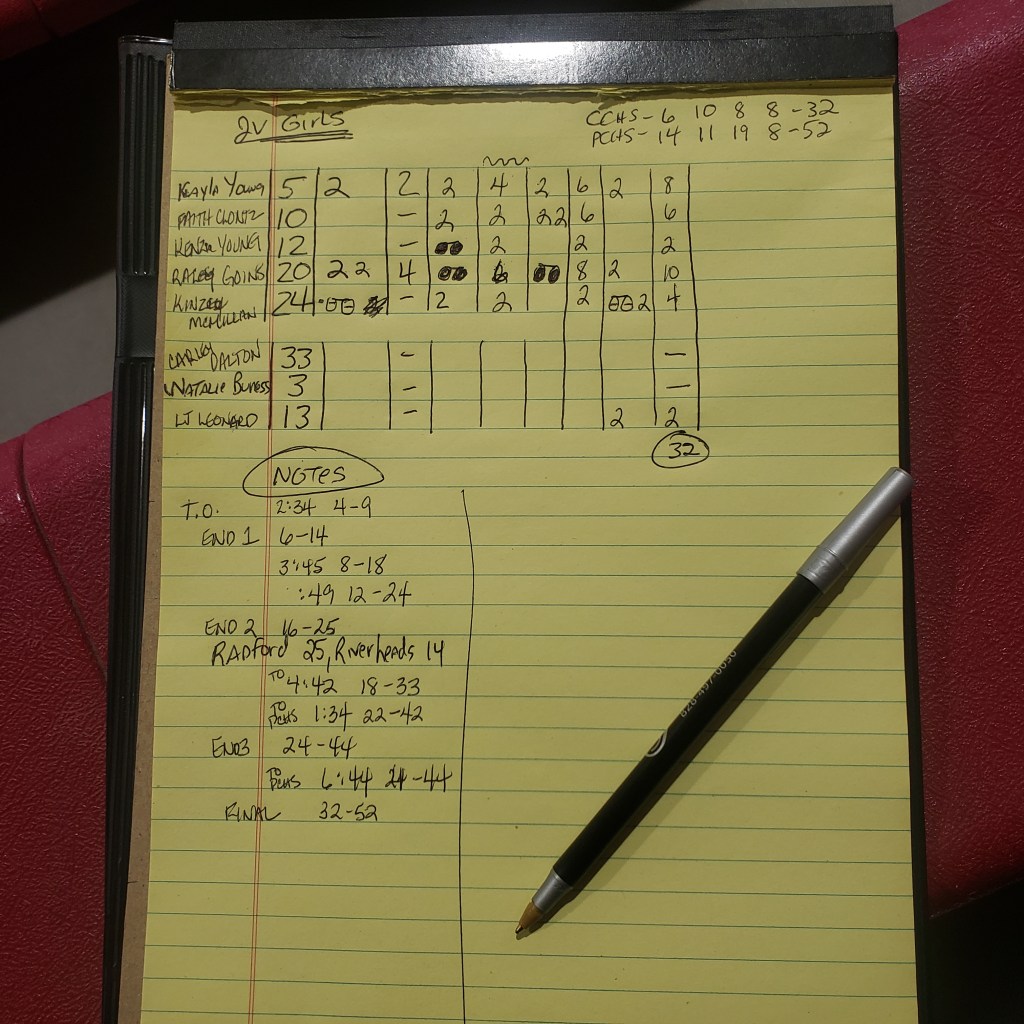 JV Girls
CCHS - 6 10 8 8 - 32
PCHS - 14 11 19 8 - 52
Kayla Young 5 2 2 2 4 2 6 2 8
FAITH CLONTZ 10 - 2 2 22 6 6
KENZIE YOUNG 12 - 2 2 2
RALEY GOINS 20 2 2 4 6 8 2 10
24 - 2 2 2 2 4
McMILLAN
CARLEY DALTON 33 - —
NATALIE 3 - —
LJ LEONARD 13 - 2 2
32
NOTES
T.O. 2:34 4-9
END 1 6-14
3:45 8-18
:49 12-24
END 2 16-25
RADford 25, Riverheads 14
TO 4:42 18-33
TO PCHS 1:34 22-42
END3 24-44
TO PCHS 6:44 24-44
FINAL 32-52